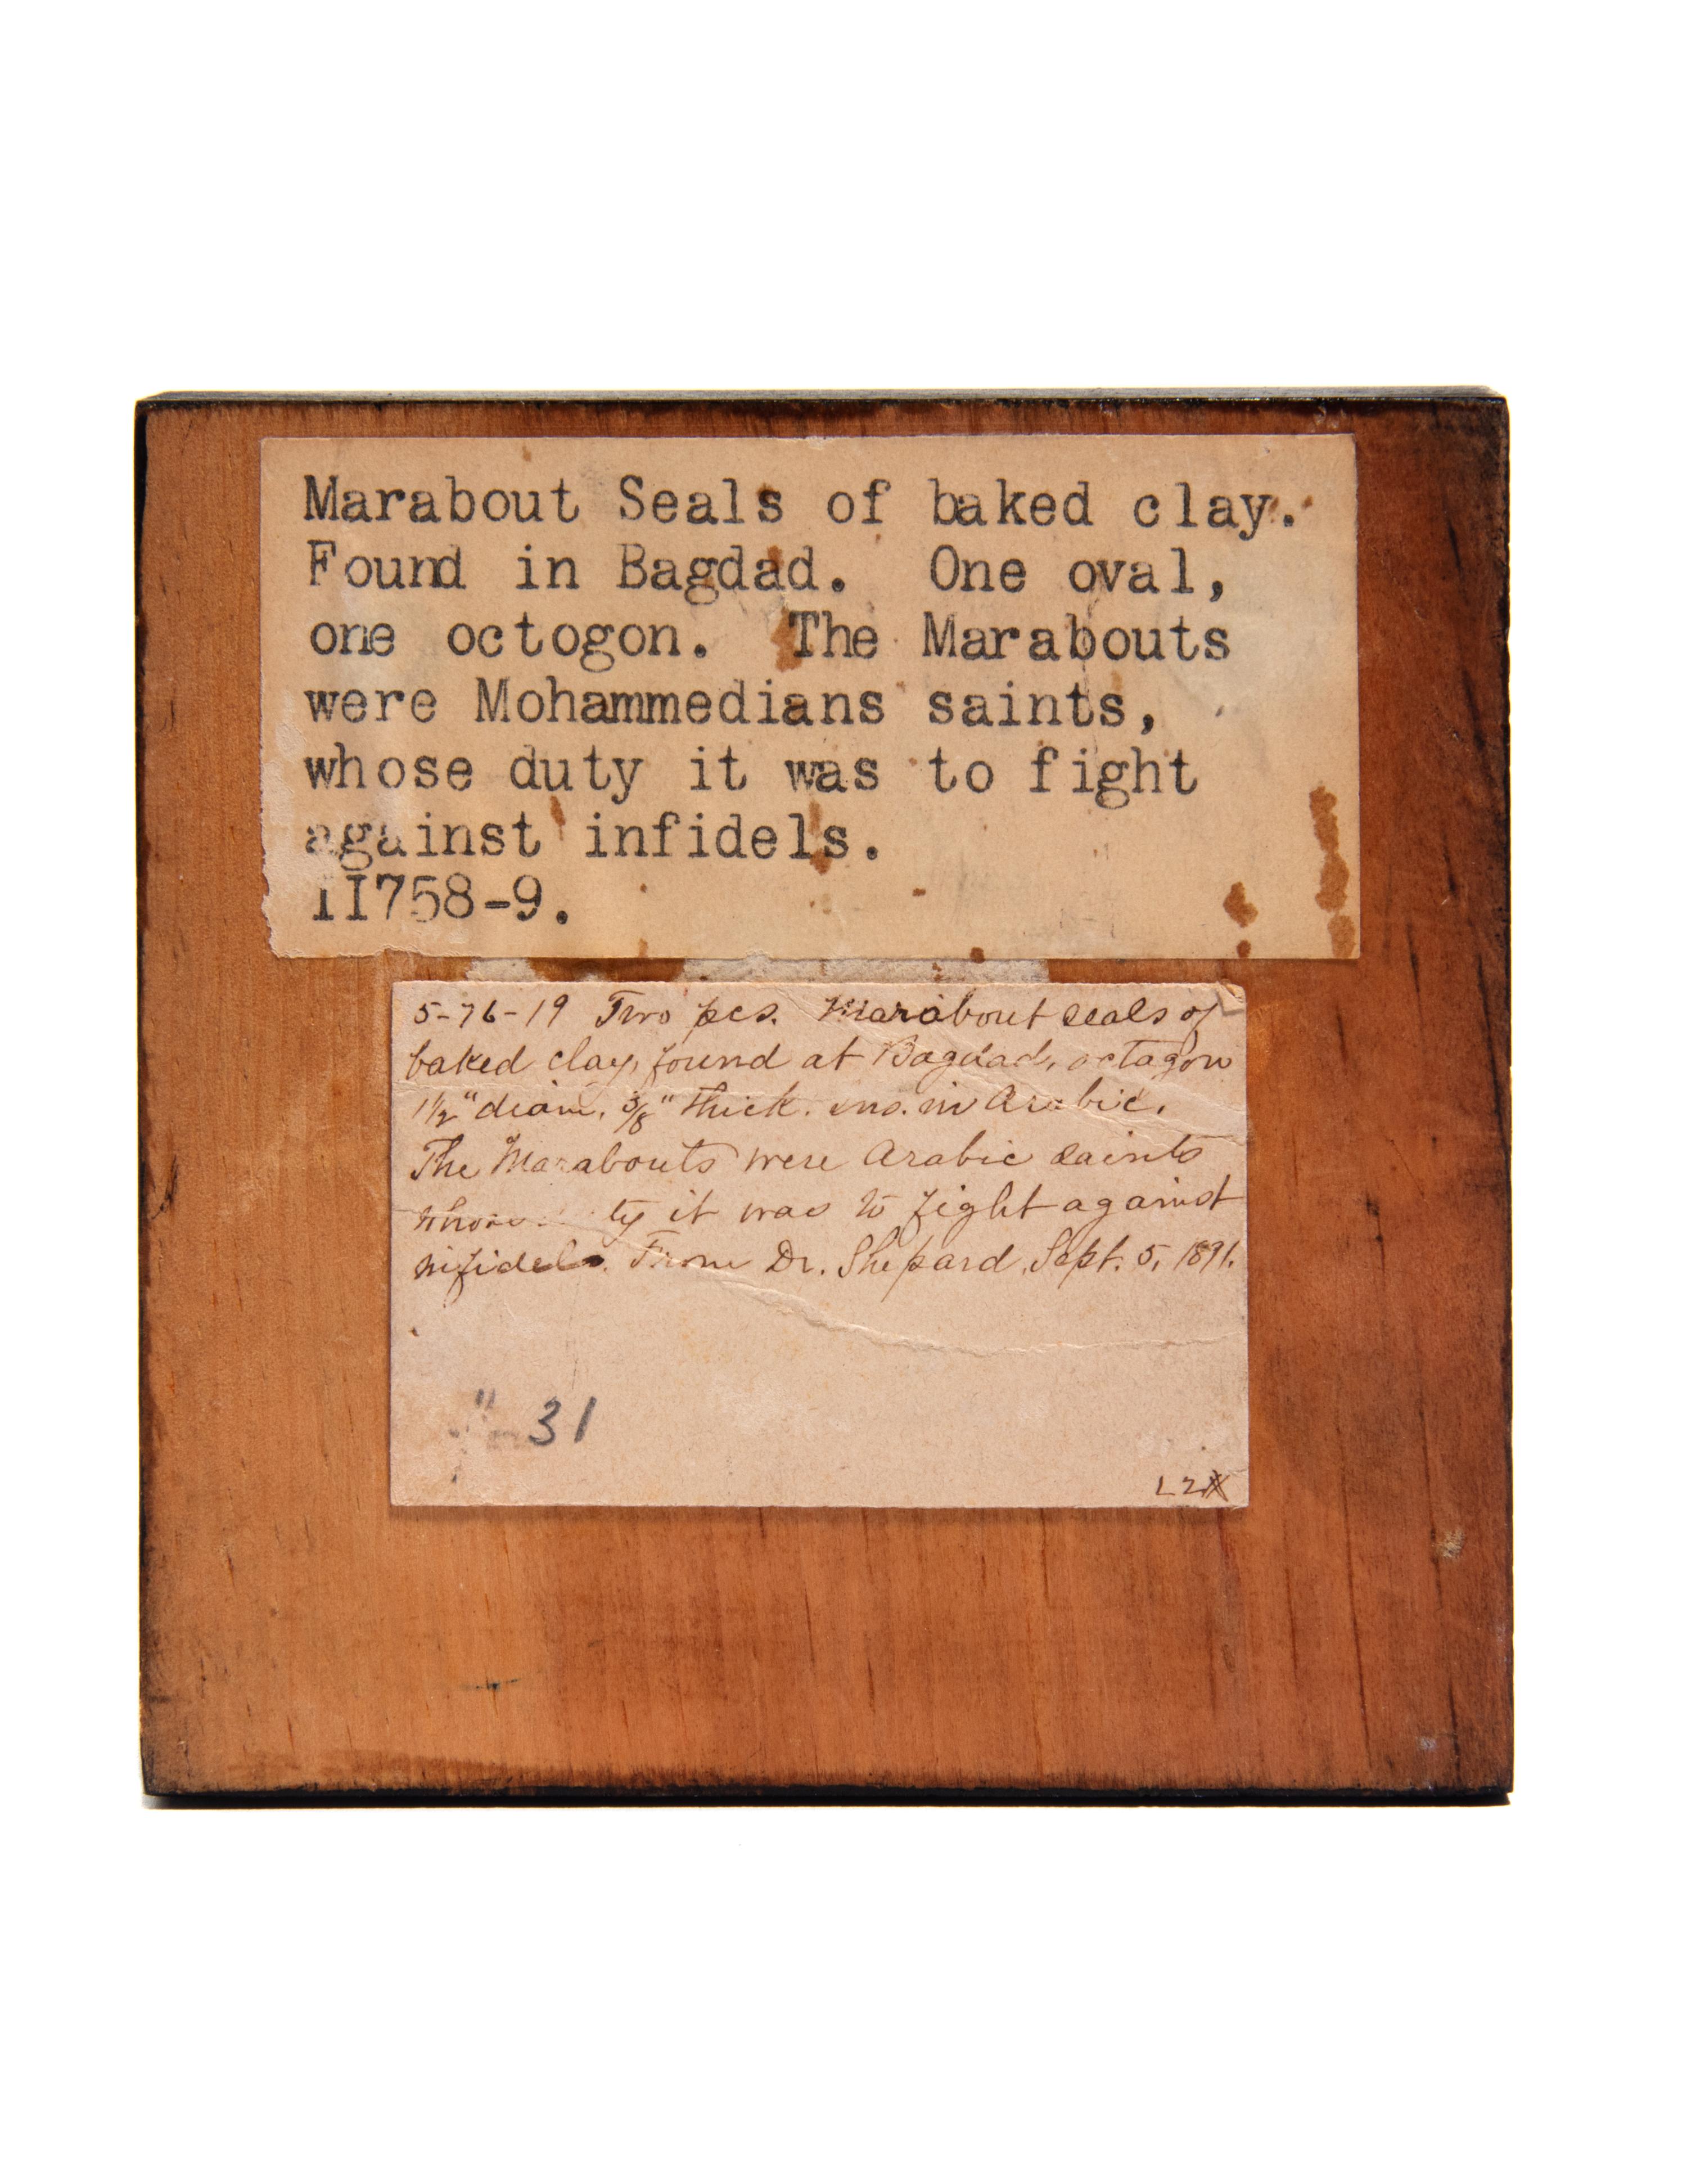 Marabout Seals of baked clay.
Found in Bagdad. One oval,
one octogon. The Marabouts
were Mohammedians saints,
whose duty it was to fight
against infidels.
11758-9.
5-76-19 Two pcs. Marabout seals of
baked clay, found at Bagdad, octagon
1½" diam, 3/8" thick. ins. in Arabic.
The Marabouts were Arabic saints
ty it was to fight against
infidels. From Dr. Shepard, Sept. 5, 1891.
31